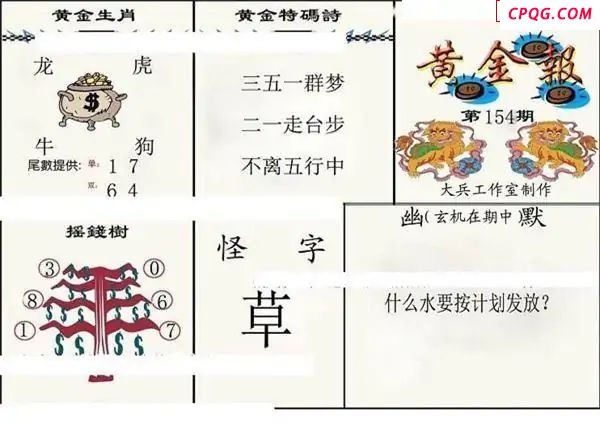 CPQG.COM
黄金生肖
龙 虎
牛 狗
尾數提供: 单: 1 7
双: 6 4
黄金特碼詩
三五一群梦
二一走台步
不离五行中
黄金報
第154期
大兵工作室制作
摇錢樹
③ ⓪
⑧ ⑥
① ⑦
怪 字
草
幽(玄机在期中)默
什么水要按计划发放?